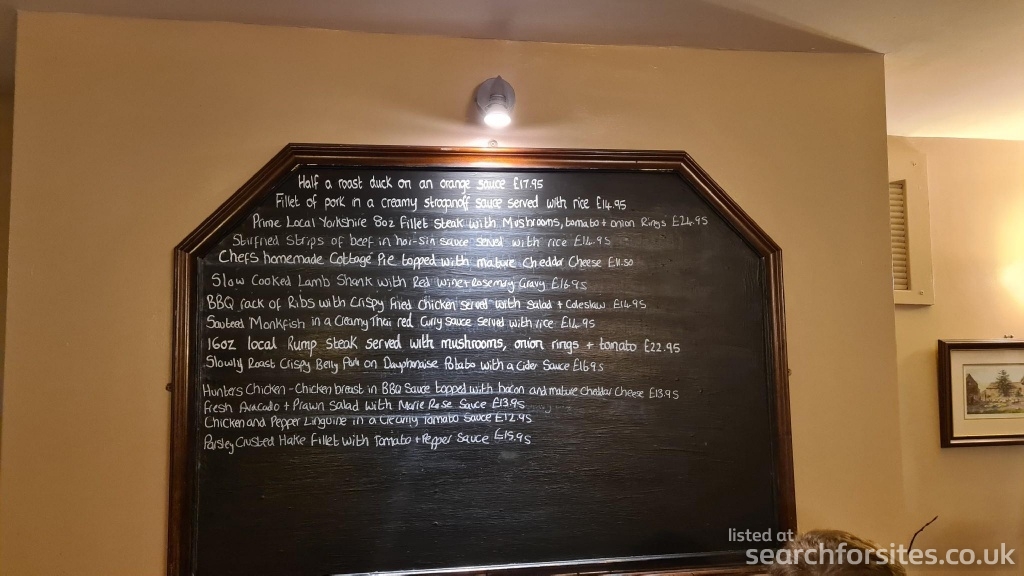 Half a roast duck on an orange sauce £17.95
Fillet of pork in a creamy stroganoff sauce served with rice £14.95
Prime Local Yorkshire 8oz Fillet Steak with Mushrooms, tomato + onion Rings £24.95
Stirfried Strips of beef in hoi-sin sauce served with rice £14.95
Chefs homemade Cottage Pie topped with mature Cheddar Cheese £11.50
Slow Cooked Lamb Shank with Red wine + Rosemary Gravy £16.95
BBQ rack of Ribs with Crispy Fried Chicken served with Salad + Coleslaw £14.95
Sauteed Monkfish in a Creamy Thai red Curry Sauce served with rice £14.95
16oz local Rump steak served with mushrooms, onion rings + tomato £22.95
Slowly Roast Crispy Belly Pork on Dauphinoise Potato with a Cider Sauce £16.95
Hunters Chicken - Chicken breast in BBQ Sauce topped with bacon and mature Cheddar Cheese £13.95
Fresh Avacado + Prawn Salad with Marie Rose Sauce £13.95
Chicken and Pepper Linguine in a Creamy Tomato Sauce £12.95
Parsley Crusted Hake Fillet with Tomato + Pepper Sauce £15.95
listed at
searchforsites.co.uk